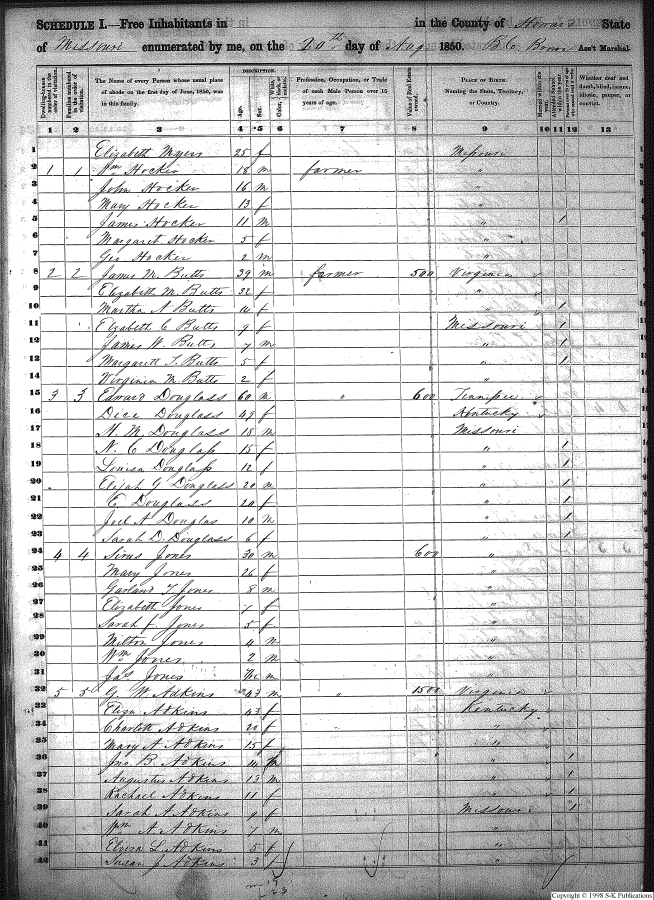 SCHEDULE I.—Free Inhabitants in in the County of Howard State
of Missouri enumerated by me, on the 20th day of Aug 1850. Ass't Marshal.
DESCRIPTION.
Dwelling-houses numbered in the order of visitation.
Families numbered in the order of visitation.
The Name of every Person whose usual place of abode on the first day of June, 1850, was in this family.
Age.
Sex.
Color, White, black, or mulatto.
Profession, Occupation, or Trade of each Male Person over 15 years of age.
Value of Real Estate owned.
PLACE OF BIRTH. Naming the State, Territory, or Country.
Married within the year.
Attended School within the year.
Whether deaf and dumb, blind, insane, idiotic, pauper, or convict.
1 2 3 4 5 6 7 8 9 10 11 12 13
1 Elizabeth Myers 25 f Missouri
2 1 1 Wm Hocker 18 m farmer "
3 John Hocker 16 m "
4 Mary Hocker 13 f "
5 James Hocker 11 m " 1
6 Margaret Hocker 5 f "
7 Geo Hocker 2 m "
8 2 2 James M. Butts 39 m farmer 500 Virginia
9 Elizabeth M. Butts 32 f "
10 Martha A Butts f " 1
11 Elzabeth C Butts 9 f Missouri 1
12 James W. Butts 7 m " 1
13 Margarett S. Butts 5 f " 1
14 Virginia M. Butts 2 f "
15 3 3 Edward Douglass 60 m " 600 Tennessee
16 Dice Douglass 49 f Kentucky
17 M. M. Douglass 18 m Missouri
18 N. C Douglass 15 f " 1
19 Louisa Douglass 12 f " 1
20 Elijah G. Douglass 20 m " 1
21 C Douglass 20 f " 1
22 Joel A Douglas 10 m " 1
23 Sarah D. Douglass 6 f " 1
24 4 4 Sirus Jones 30 m 600 "
25 Mary Jones 26 f "
26 Garland T Jones 8 m "
27 Elizabeth Jones 7 f "
28 Sarah F. Jones 5 f "
29 Milton Jones 4 m "
30 Wm Jones 2 m "
31 Jas Jones m "
32 5 5 G. W Adkins 43 m " 1500 Virginia
33 Eliza Adkins 43 f Kentucky
34 Charlott Adkins 20 f "
35 Mary A Adkins 15 f "
36 Jno. B. Adkins m " 1
37 Augustus Adkins 13 m " 1
38 Rachael Adkins 11 f " 1
39 Sarah A Adkins 9 f Missouri 1
40 Wm A Adkins 7 m "
41 Elvira L. Adkins 5 f "
42 Susan J Adkins 3 f "
Copyright © 1998 S-K Publications